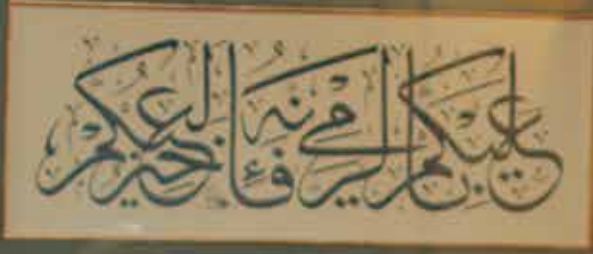 عليكم بالرمي فإنه خير لعبكم